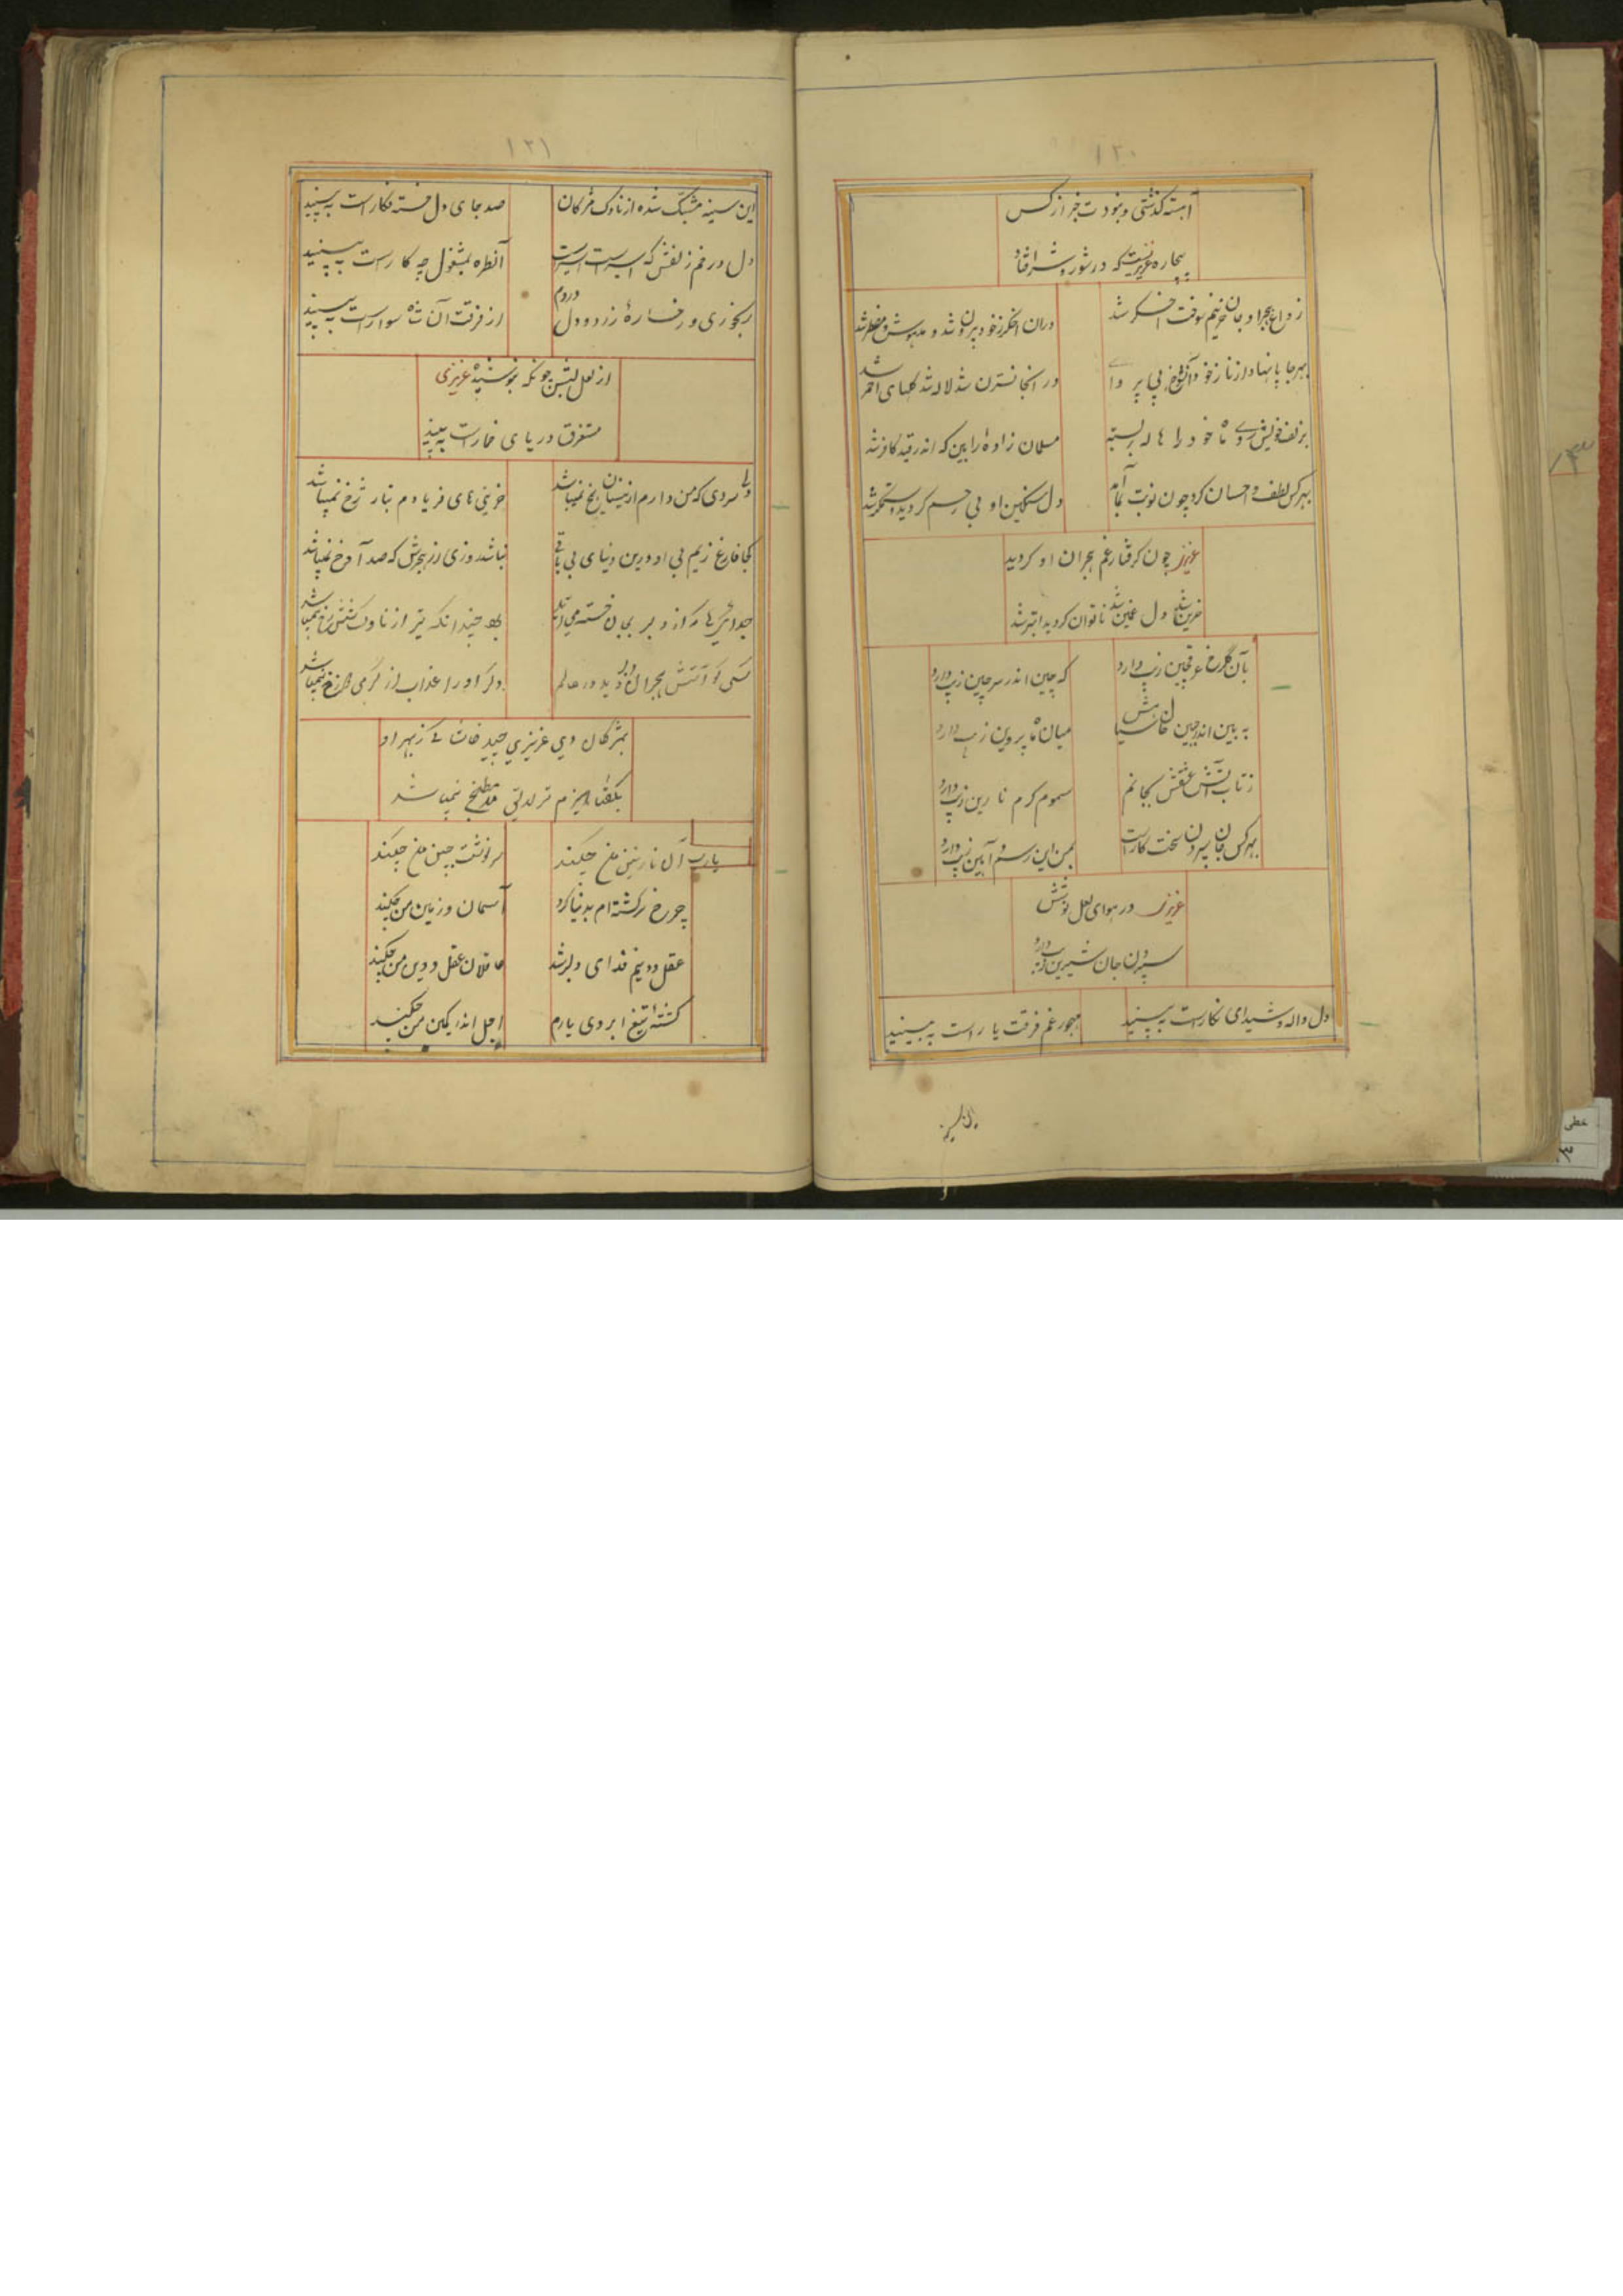 ۱۲۰
آهسته گذشتی و نبودت خبر از کس
بیچاره عزیزیست که در شور و شر افتاد
ز داغ هجر او جان حزینم سوخت اخگر شد
دران اخگر ز خود بیرون شد و مدهوش و مضطر شد
بهر جا پا نهاد از ناز خود آنشوخ بی پروا
در انجا نسترن شد لاله شد گلهای احمر شد
بزلف خویش روی ماه خود را هاله بر بسته
مسلمان زادهٔ را بین که اندر قید کافر شد
بهر کس لطف و احسان کرد چون نوبت بما آمد
دل سنگین او بی رحم گردید و ستمگر شد
عزیز چون گرفتار غم هجران او گردید
حزین شد دل غمین شد ناتوان گردید ابتر شد
بآن گلرخ عرقچین زیب دارد
که چین اندر سر چین زیب دارد
به بین اندر جبین خال سیاهش
میان ماه پروین زیب دارد
ز تاب آتش عشقش بجانم
سموم گرم نارین زیب دارد
بهر کس جان سپردن سخت کار است
بمن این رسم و آیین زیب دارد
عزیزی در هوای لعل نوشش
سپردن جان شیرین زیب دارد
دل واله و شیدای نگار است به بینید
مهجور غم فرقت یار است به بینید
۱۲۱
این سینه مشبک شده از ناوک مژگان
صد جای دل خسته فکار است به بینید
دل در خم زلفش که اسیر است اسیر است
آنطره بمشغول چه کار است به بینید
رنجوری و رخسارهٔ زرد و دل
از فرقت آن شاه سوار است به بینید
از لعل لبش چونکه بنوشیده عزیزی
مستغرق دریای خمار است به بینید
دم سردی که من دارم از نیسان یخ نمیباشد
کجا فارغ زیم بی او درین دنیای بی باقی
نباشد روزی از هجرش که صد آوخ نمیباشد
دگر او را عذاب از گرمی دوزخ نمیباشد
بمژگان دی عزیزی چید خاشاکی ز بهر او
یارب آن نازنین من چکند
سرنوشت جبین من چکند
چرخ سرگشته ام به دنیا کرد
آسمان و زمین من چکند
عقل و دینم فدای دلبر شد
عاقلان عقل و دین من چکند
کشتهٔ تیغ ابروی یارم
اجل اندر کمین من چکند
خطی